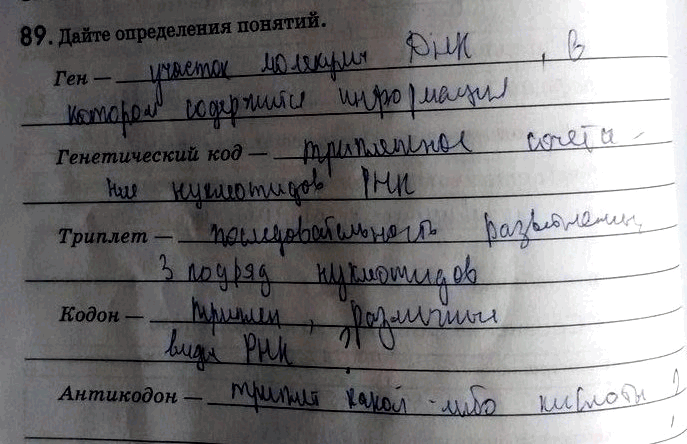 89. Дайте определения понятий.
Ген — участок молекулы ДНК, в
котором содержится информация
Генетический код — триплетное сочета-
ние нуклеотидов РНК
Триплет — последовательность
3 подряд нуклеотидов
Кодон — триплет, различные
виды РНК ?
Антикодон — триплет какой-либо кислоты ?